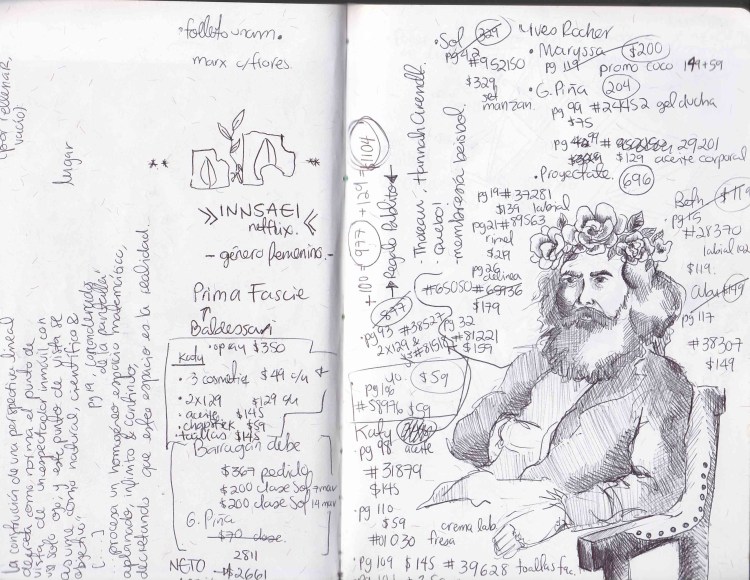 ·folleto unam.
marx c/flores.
(por rellenar
vacío)
lugar
>> INNSAEI <<
netflix.
- género femenino.-
Prima Fascie
Baldessari
Kady
· 3 cosmetic $49 c/u
· 2x129 $129 c/u
· aceite $145
· chapstick $59
· toallas $145
Barragán debe
$367 pedido
$200 clase Sof 7 mar
$200 clase Sof 14 mar
G. Piña
$70 clase.
2811
NETO -$2661
La construcción de una perspectiva lineal
decreta como norma el punto de
vista de un espectador inmóvil con
un solo ojo, y este punto de vista se
asume como natural, científico &
objetivo.
[...]
pg 19. (
de la pantalla)
un homogéneo espacio matemático,
aplanado, infinito & continuo,
decretando que este espacio es la realidad.
+100 = 977 + 129 = $1104
Regalo Pablito
· Thoreau, Hannah Arendt.
· Quebo!
· membresía beisbol.
Yves Rocher
· Sof 329
pg 42
#952150
$329
set
manzan.
· Maryssa $200
pg 119 promo coco 149+59
· G. Piña 204
pg 99 #24452 gel ducha
$75
29201
$129 aceite corporal
· Proyectate. 696
pg 19 # 37281
$139 labial
pg 21 # 89563
rimel
$219
pg 26
delinea
#65050
$179
897
pg 93 #38527
2x129 &
pg 32
#81221
$159
yo. $59
pg 106
#58976 $59
Katy
pg 98 aceite
# 31879
$145
· pg 110
$59 crema lab.
#01030 fresa
· pg 109 $145 # 39628 toallas fac.
Beth $119
pg 15
#28370
labial
$119.
Cuba $149
pg 117
# 38307
$149